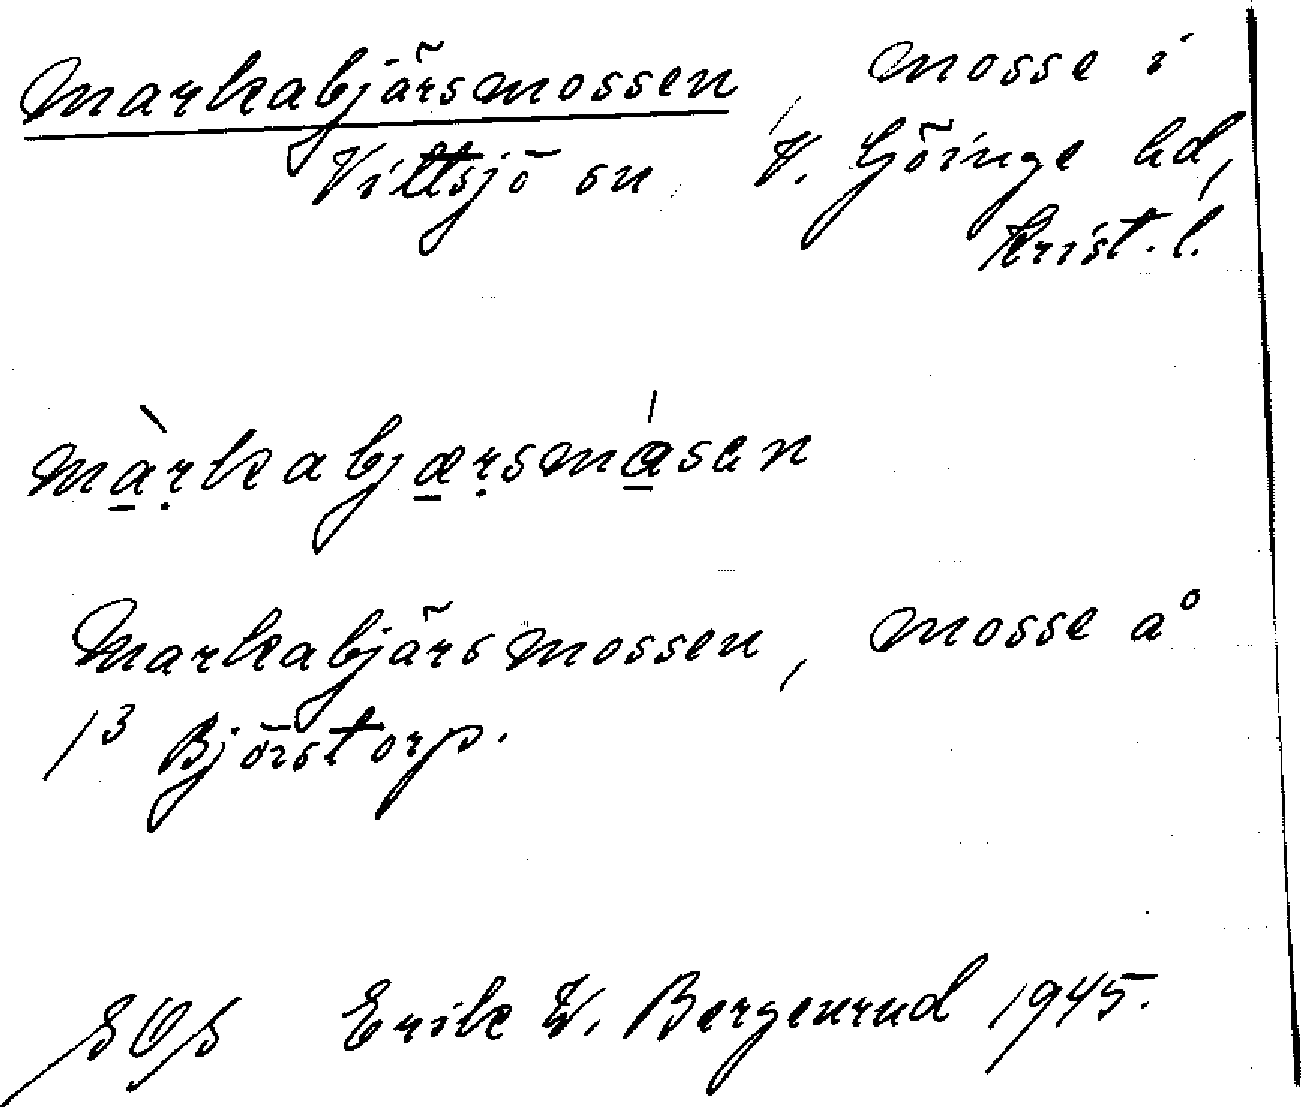 Markabjärsmossen, mosse i
Vittsjö sn, V. Göinge hd,
Krist. l.
màrkabjærsmåsen
Markabjärsmossen, mosse å
1³ Björstorp.
SOS Erik W. Bergenrud 1945.